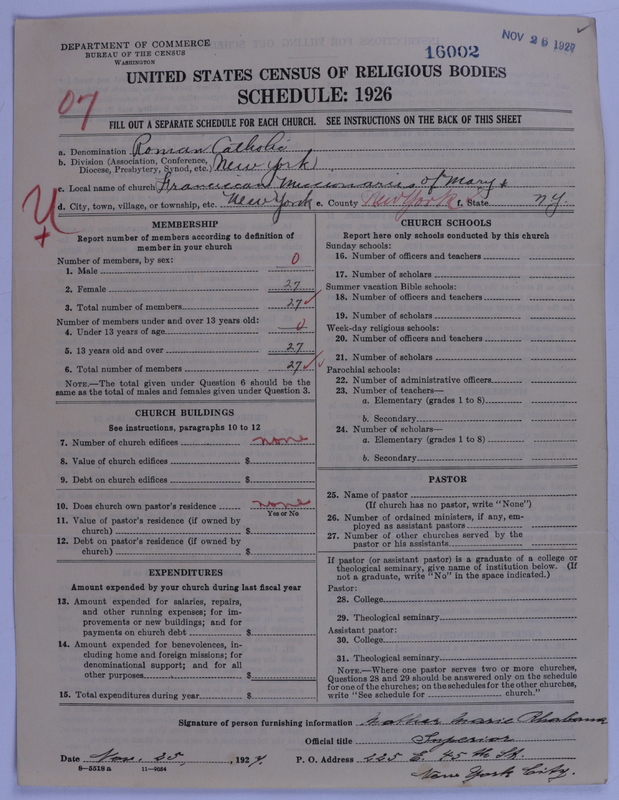 DEPARTMENT OF COMMERCE
BUREAU OF THE CENSUS
WASHINGTON
16002
NOV 26 1927
UNITED STATES CENSUS OF RELIGIOUS BODIES
SCHEDULE: 1926
07
FILL OUT A SEPARATE SCHEDULE FOR EACH CHURCH. SEE INSTRUCTIONS ON THE BACK OF THIS SHEET
a. Denomination Roman Catholic
b. Division (Association, Conference, Diocese, Presbytery, Synod, etc.) New York
c. Local name of church Franciscan Missionaries of Mary
d. City, town, village, or township, etc. New York e. County New York f. State N.Y.
MEMBERSHIP
Report number of members according to definition of
member in your church
Number of members, by sex:
1. Male 0
2. Female 27
3. Total number of members 27
Number of members under and over 13 years old:
4. Under 13 years of age 0
5. 13 years old and over 27
6. Total number of members 27
NOTE.—The total given under Question 6 should be the
same as the total of males and females given under Question 3.
CHURCH BUILDINGS
See instructions, paragraphs 10 to 12
7. Number of church edifices none
8. Value of church edifices $
9. Debt on church edifices $
10. Does church own pastor's residence none
Yes or No
11. Value of pastor's residence (if owned by
church) $
12. Debt on pastor's residence (if owned by
church) $
EXPENDITURES
Amount expended by your church during last fiscal year
13. Amount expended for salaries, repairs,
and other running expenses; for im-
provements or new buildings; and for
payments on church debt $
14. Amount expended for benevolences, in-
cluding home and foreign missions; for
denominational support; and for all
other purposes $
15. Total expenditures during year $
CHURCH SCHOOLS
Report here only schools conducted by this church
Sunday schools:
16. Number of officers and teachers
17. Number of scholars
Summer vacation Bible schools:
18. Number of officers and teachers
19. Number of scholars
Week-day religious schools:
20. Number of officers and teachers
21. Number of scholars
Parochial schools:
22. Number of administrative officers
23. Number of teachers—
a. Elementary (grades 1 to 8)
b. Secondary
24. Number of scholars—
a. Elementary (grades 1 to 8)
b. Secondary
PASTOR
25. Name of pastor
(If church has no pastor, write "None")
26. Number of ordained ministers, if any, em-
ployed as assistant pastors
27. Number of other churches served by the
pastor or his assistants
If pastor (or assistant pastor) is a graduate of a college or
theological seminary, give name of institution below. (If
not a graduate, write "No" in the space indicated.)
Pastor:
28. College
29. Theological seminary
Assistant pastor:
30. College
31. Theological seminary
NOTE.—Where one pastor serves two or more churches,
Questions 28 and 29 should be answered only on the schedule
for one of the churches; on the schedules for the other churches,
write "See schedule for church."
Signature of person furnishing information Mother Marie
Official title Superior
Date Nov. 25, 1927. P. O. Address 225 E. 45th St.
8—5518 a 11—9054
New York City.